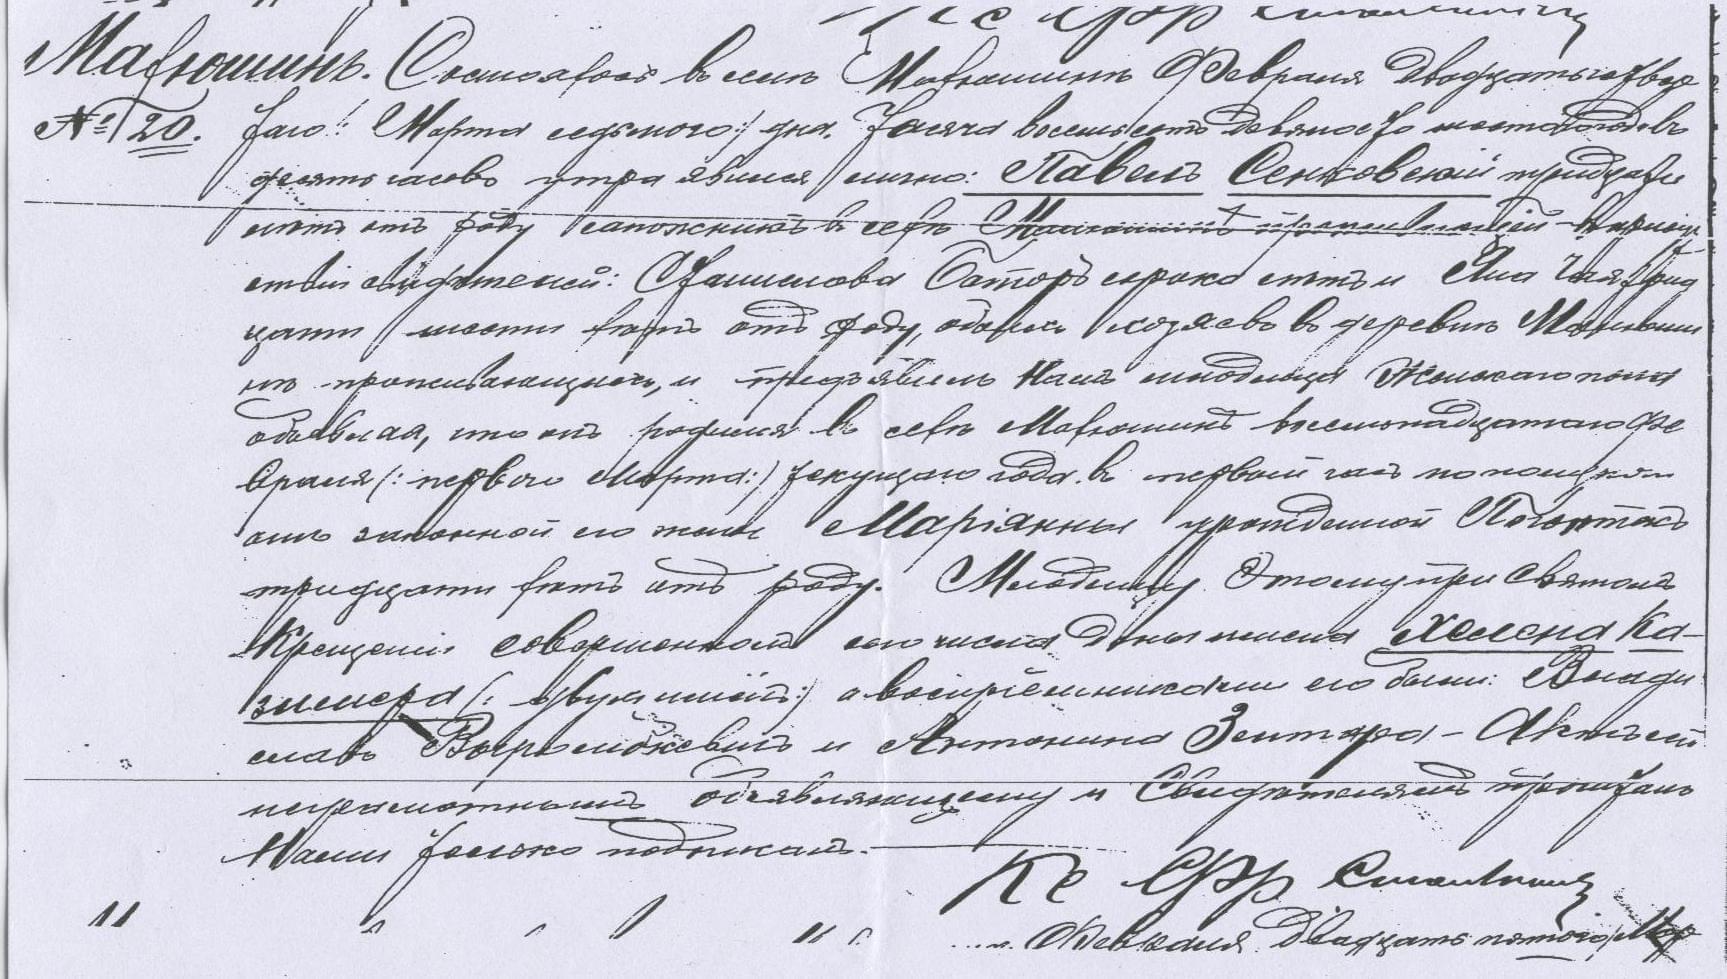 Матюшинъ. Состоялось въ селѣ Матюшинѣ Февраля двадцать четвер
№ 20. таго /: Марта седьмого :/ дня. Тысяча восемьсотъ девяносто шестого года въ
десять часовъ утра явился лично: Павелъ Сенковскій тридцати
лѣтъ отъ роду сапожникъ въ селѣ Матюшинѣ проживающій въ присут
ствіи свидѣтелей: Станислава Баторъ сорока лѣтъ и Яна трид
цати шести лѣтъ отъ роду, обоихъ хозяевъ въ деревнѣ Матюши
нѣ проживающихъ, и предъявилъ Намъ младенца Женскаго пола
объявляя, что онъ родился въ селѣ Матюшинѣ восемнадцатаго Фе
враля (: перваго Марта :) текущаго года въ первый часъ по полудни
отъ законной его жены Маріянны урожденной
тридцати лѣтъ отъ роду. Младенцу Этому при Святомъ
Крещеніи совершенномъ сего числа даны имена Хелена Ка-
зимера (: двухъ имёнъ :) а воспріемниками его были: Влади
славъ и Антонина Зентара - Актъ сей
неграмотнымъ объявляющему и Свидѣтелямъ прочитанъ
Нами только подписанъ.
Кс
Февраля двадцать пятого/ Мар